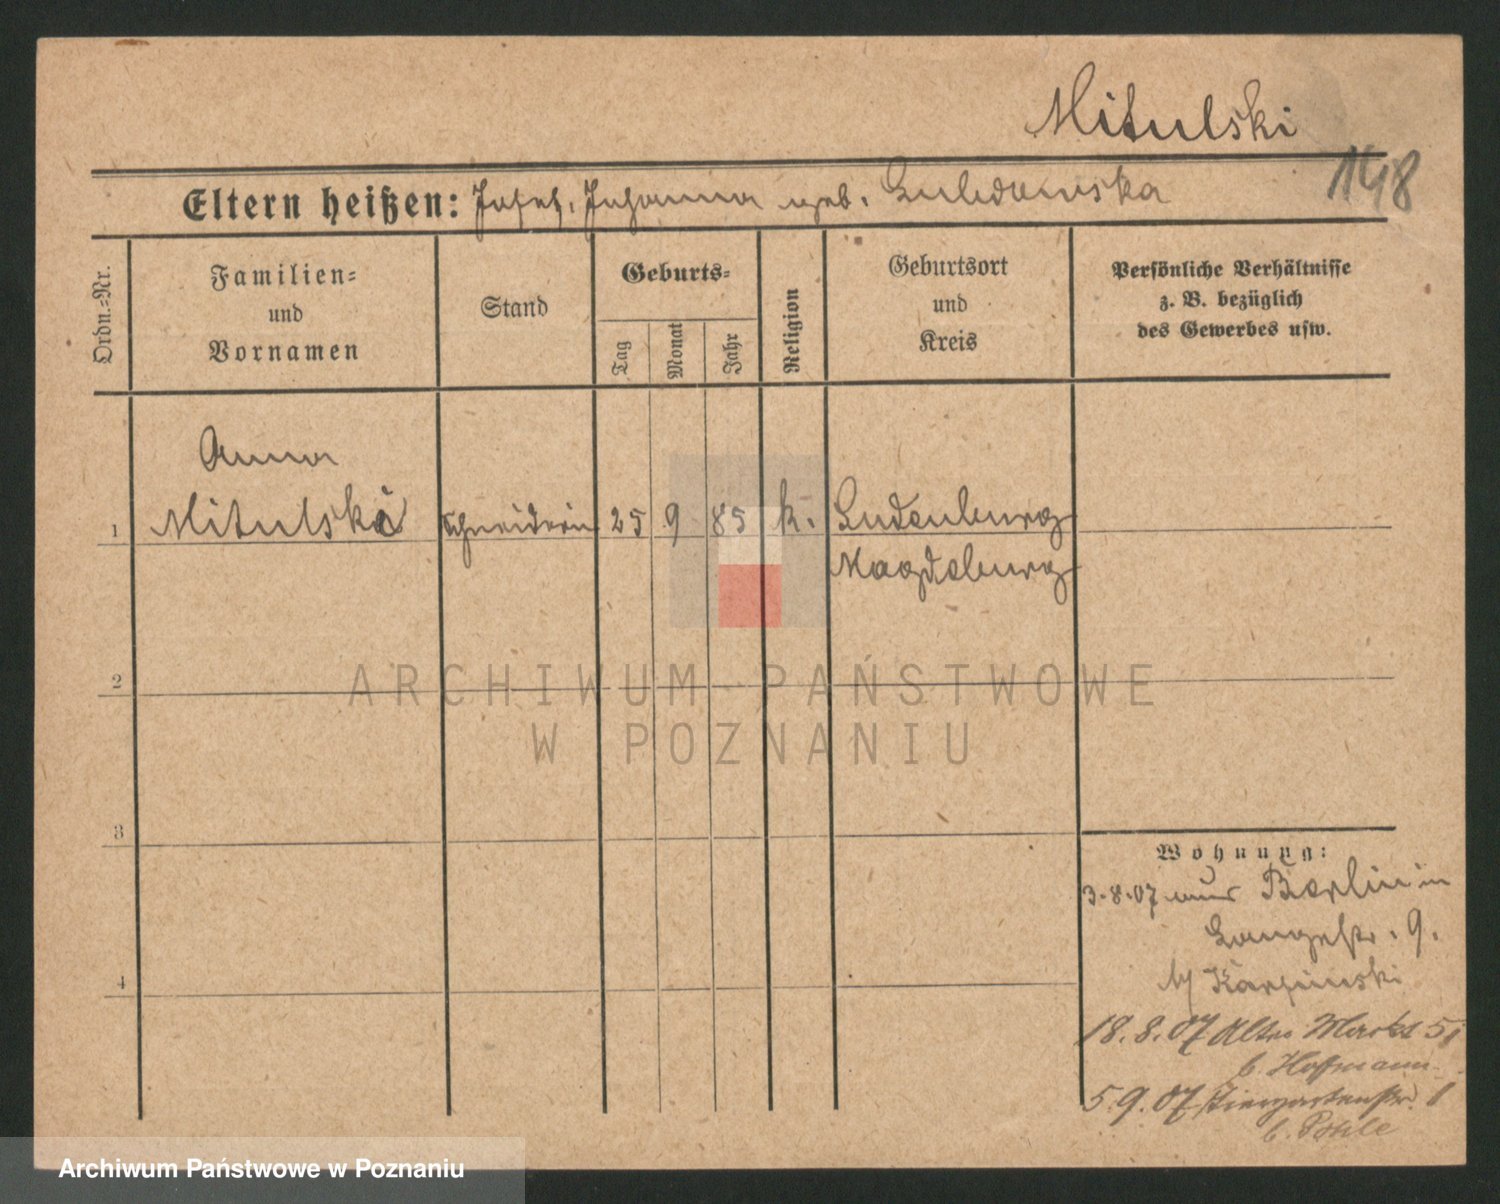 Mitulski
148
Eltern heißen: Josef, Johanna geb.
Ordn.-Nr.
Familien- und Vornamen
Stand
Geburts-
Tag
Monat
Jahr
Religion
Geburtsort und Kreis
Persönliche Verhältnisse
z. B. bezüglich
des Gewerbes usw.
Anna
1 Mitulski Schneiderin 25 9 85 k. Sudenburg
Magdeburg
2
ARCHIWUM PAŃSTWOWE
W POZNANIU
3
Wohnung:
3.8.07 aus Berlin in
Langestr. 9.
b/ Karpinski
4
18.8.07 Alter Markt 51
b. Hoffmann
5.9.07 Tiergartenstr. 1
b. Pohle
Archiwum Państwowe w Poznaniu